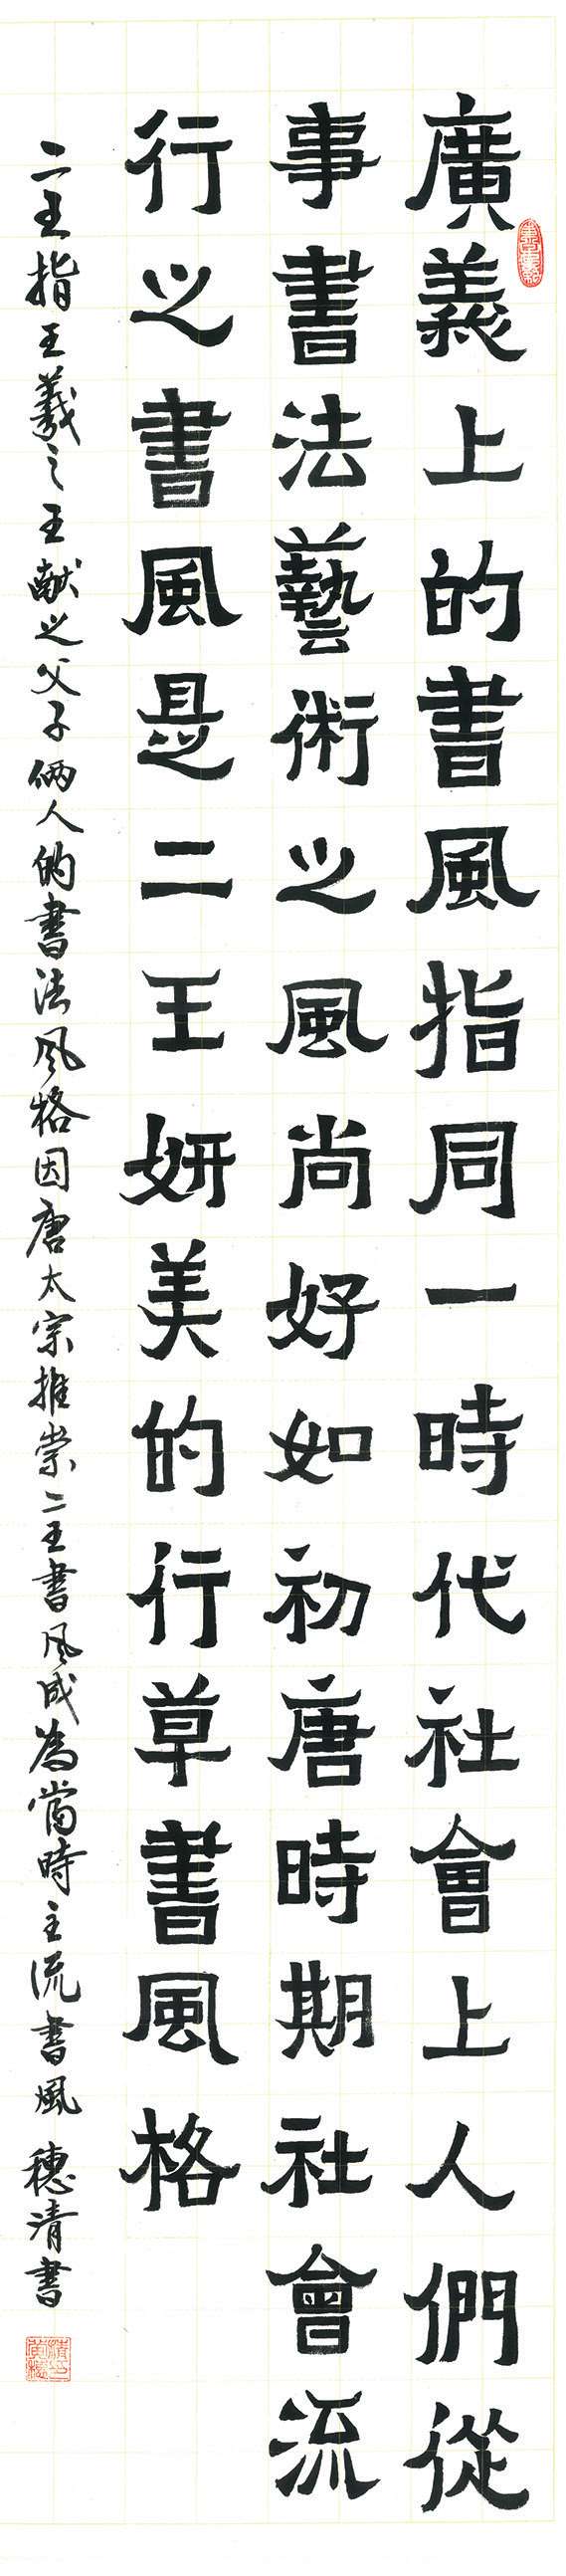 廣義上的書風指同一時代社會上人們從
事書法藝術之風尚好如初唐時期社會流
行之書風是二王妍美的行草書風格
二王指王羲之王献之父子俩人的書法风格因唐太宗推崇二王書风成為當時主流書風 穗清書